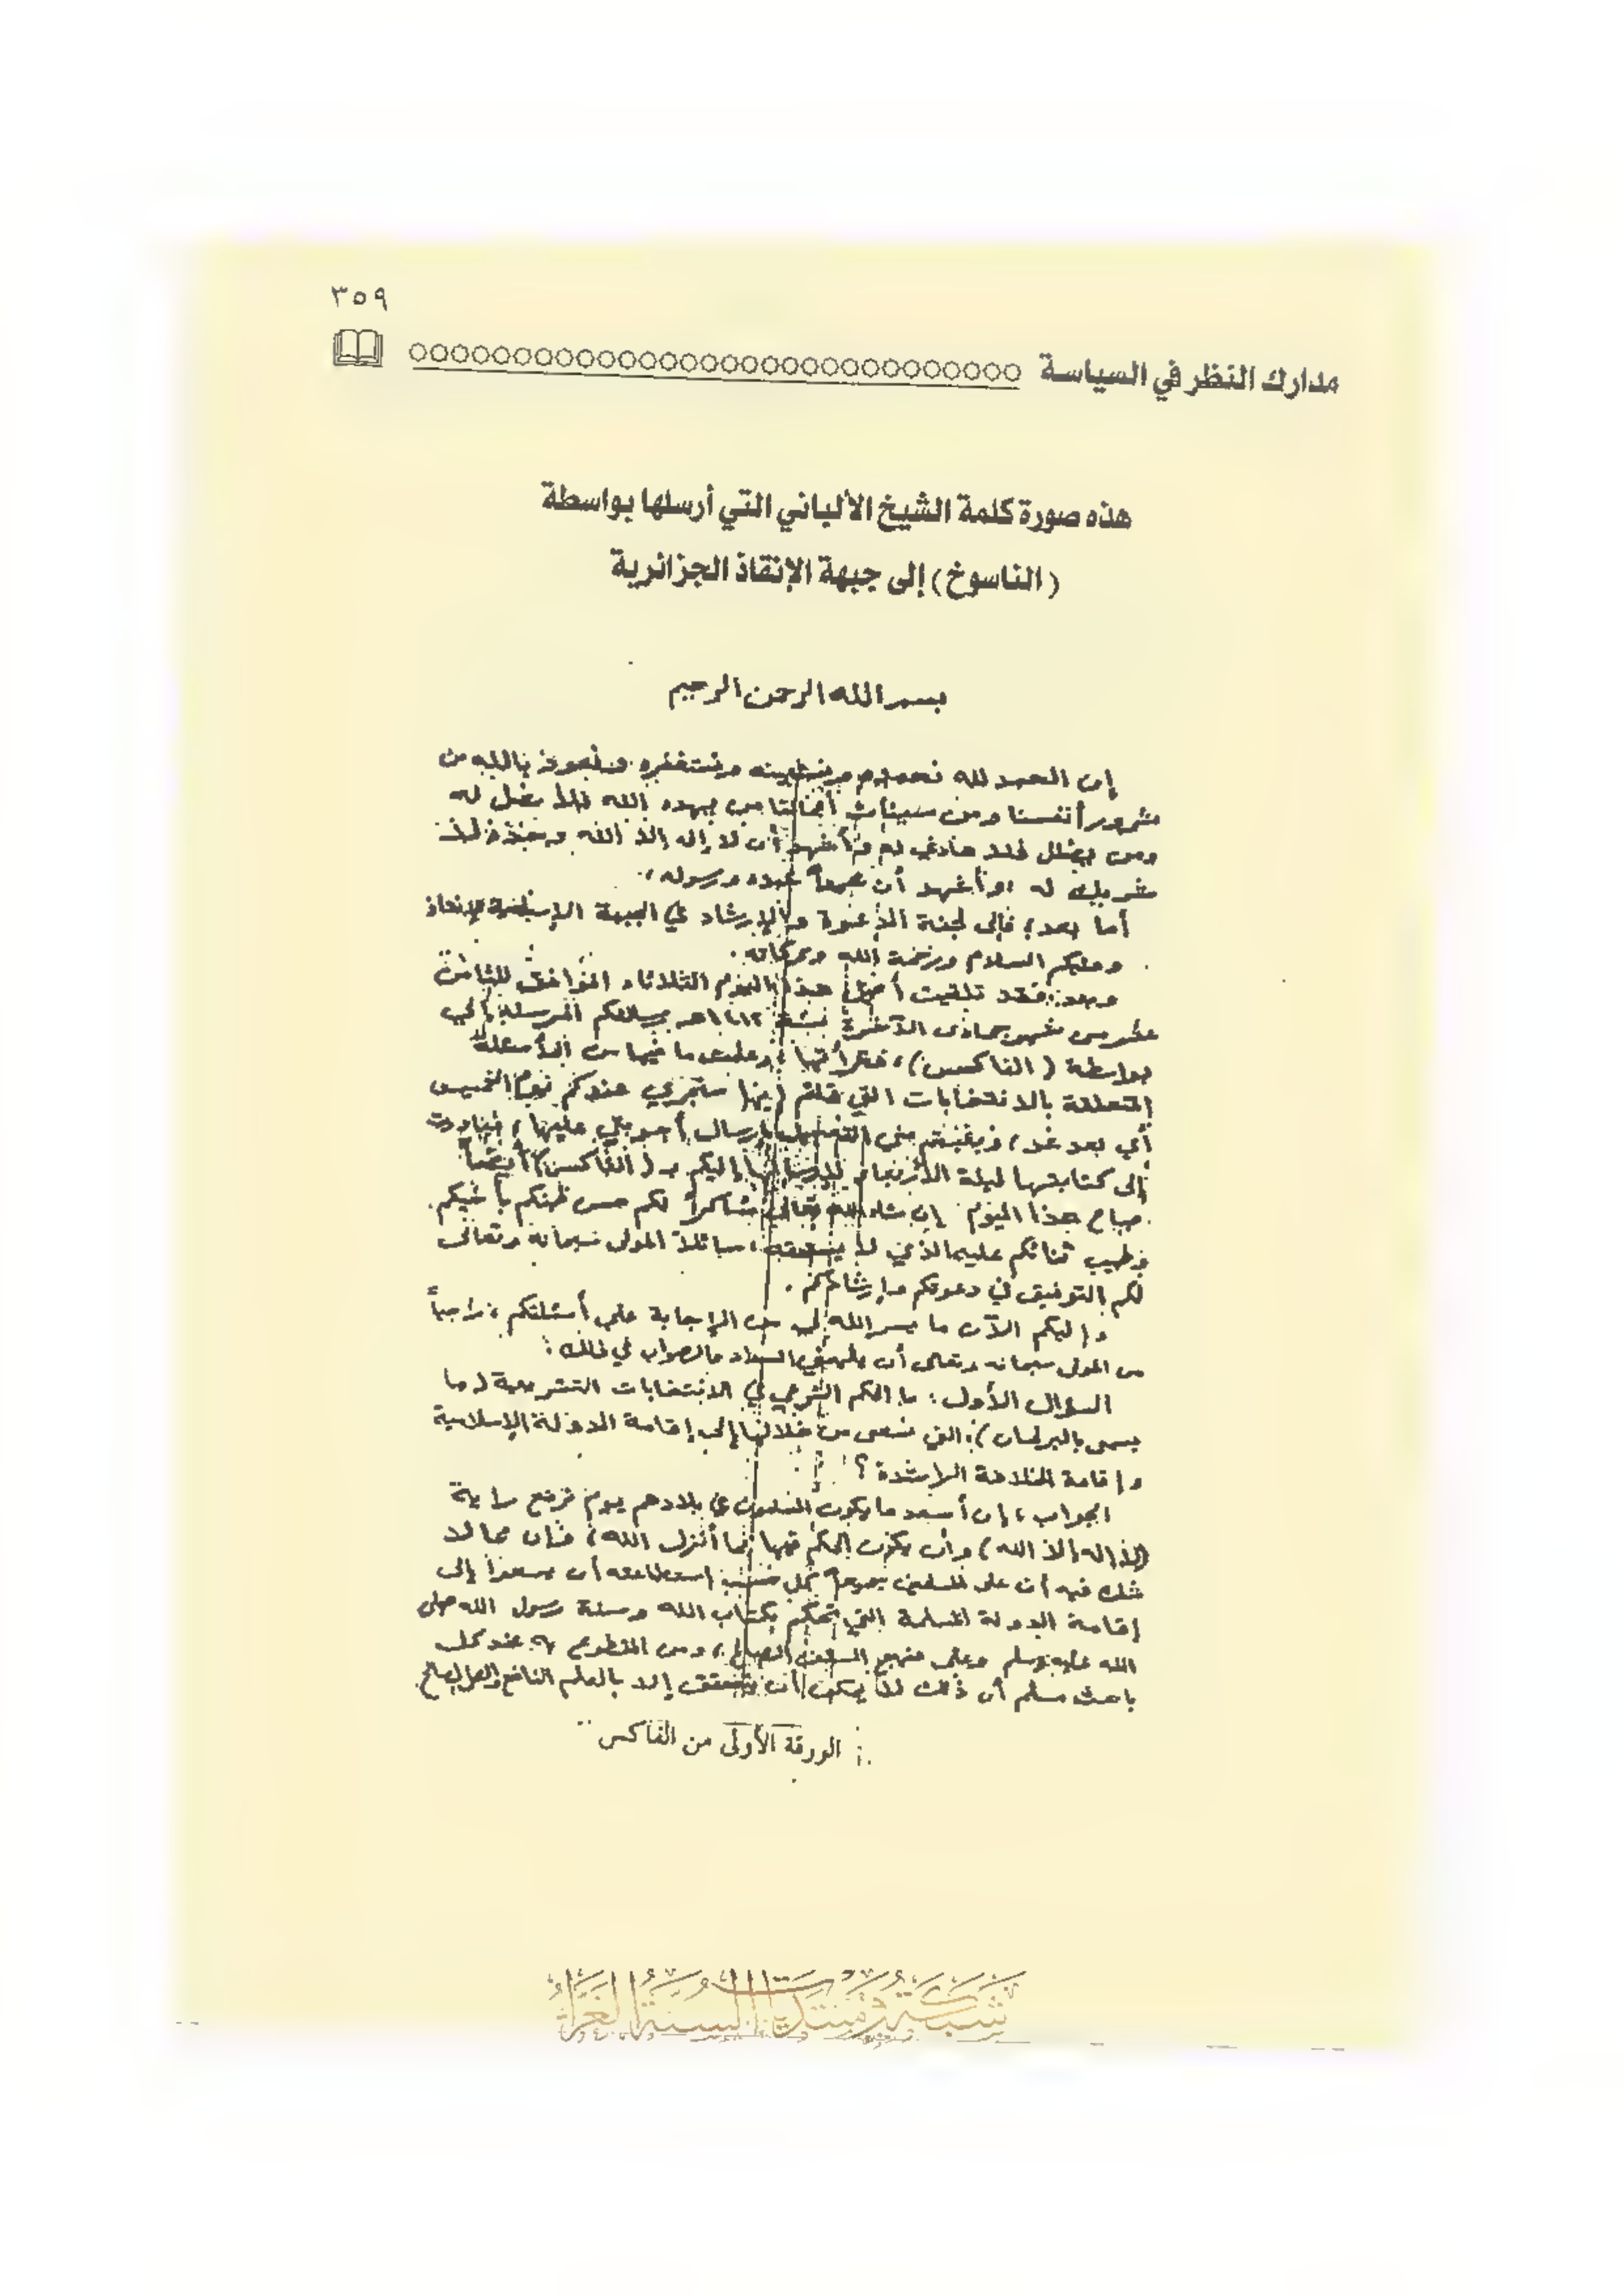 ٣٥٩
مدارك النظر في السياسة
هذه صورة كلمة الشيخ الألباني التي أرسلها بواسطة
(الناسوخ) إلى جبهة الإنقاذ الجزائرية
بسم الله الرحمن الرحيم
إن الحمد لله نحمده ونستعينه ونستغفره ونعوذ بالله من
شرور أنفسنا ومن سيئات أعمالنا من يهده الله فلا مضل له
ومن يضلل فلا هادي له وأشهد أن لا إله إلا الله وحده لا
شريك له وأشهد أن محمداً عبده ورسوله،
أما بعد؛ فإلى لجنة الدعوة والإرشاد في الجبهة الإسلامية للإنقاذ
وعليكم السلام ورحمة الله وبركاته.
وبعد: فقد تلقيت أصيل هذا اليوم الثلاثاء الموافق للثامن
عشر من شهر جمادى الآخرة سنة ١٤١٢هـ رسالتكم المرسلة إلي
بواسطة (الفاكس)، فقرأتها، وعلمت ما فيها من الأسئلة
المتعلقة بالانتخابات التي قلتم إنها ستجري عندكم يوم الخميس
أي بعد غد، ورغبتم مني التعجيل بإرسال أجوبتي عليها، فبادرت
إلى كتابتها ليلة الأربعاء لإرسالها إليكم بـ(الفاكس) أيضاً
صباح هذا اليوم إن شاء الله تعالى شاكراً لكم حسن ظنكم بأخيكم
وطيب ثنائكم عليه الذي لا يستحقه، سائلاً المولى سبحانه وتعالى
لكم التوفيق في دعوتكم وإرشادكم.
وإليكم الآن ما يسر الله لي من الإجابة على أسئلتكم، راجياً
من المولى سبحانه وتعالى أن يلهمني السداد والصواب في ذلك:
السؤال الأول: ما الحكم الشرعي في الانتخابات التشريعية (ما
يسمى بالبرلمان) التي نسعى من خلالها إلى إقامة الدولة الإسلامية
وإقامة الخلافة الراشدة؟
الجواب: إن أسعد ما يكون المسلمون في بلادهم يوم ترفع راية
(لا إله إلا الله) وأن يكون الحكم فيها بما أنزل الله، فإن مما لا
شك فيه أن على المسلمين جميعاً كل حسب استطاعته أن يسعوا إلى
إقامة الدولة المسلمة التي تحكم بكتاب الله وسنة رسول الله صلى
الله عليه وسلم وعلى منهج السلف الصالح، ومن المقطوع به عند كل
باحث مسلم أن ذلك لا يمكن أن يتحقق إلا بالعلم النافع والعمل الصالح.
الورقة الأولى من الفاكس
شبكة ومنتديات السنة الغراء